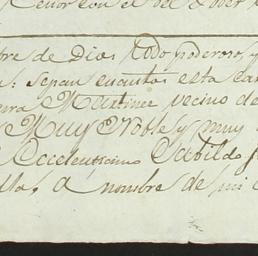 con el
bre de Dios todo poderoso, y
sepan cuantos esta car
Martinez vecino de
Muy Noble y muy
Excelentisimo Cabildo
a nombre de mi